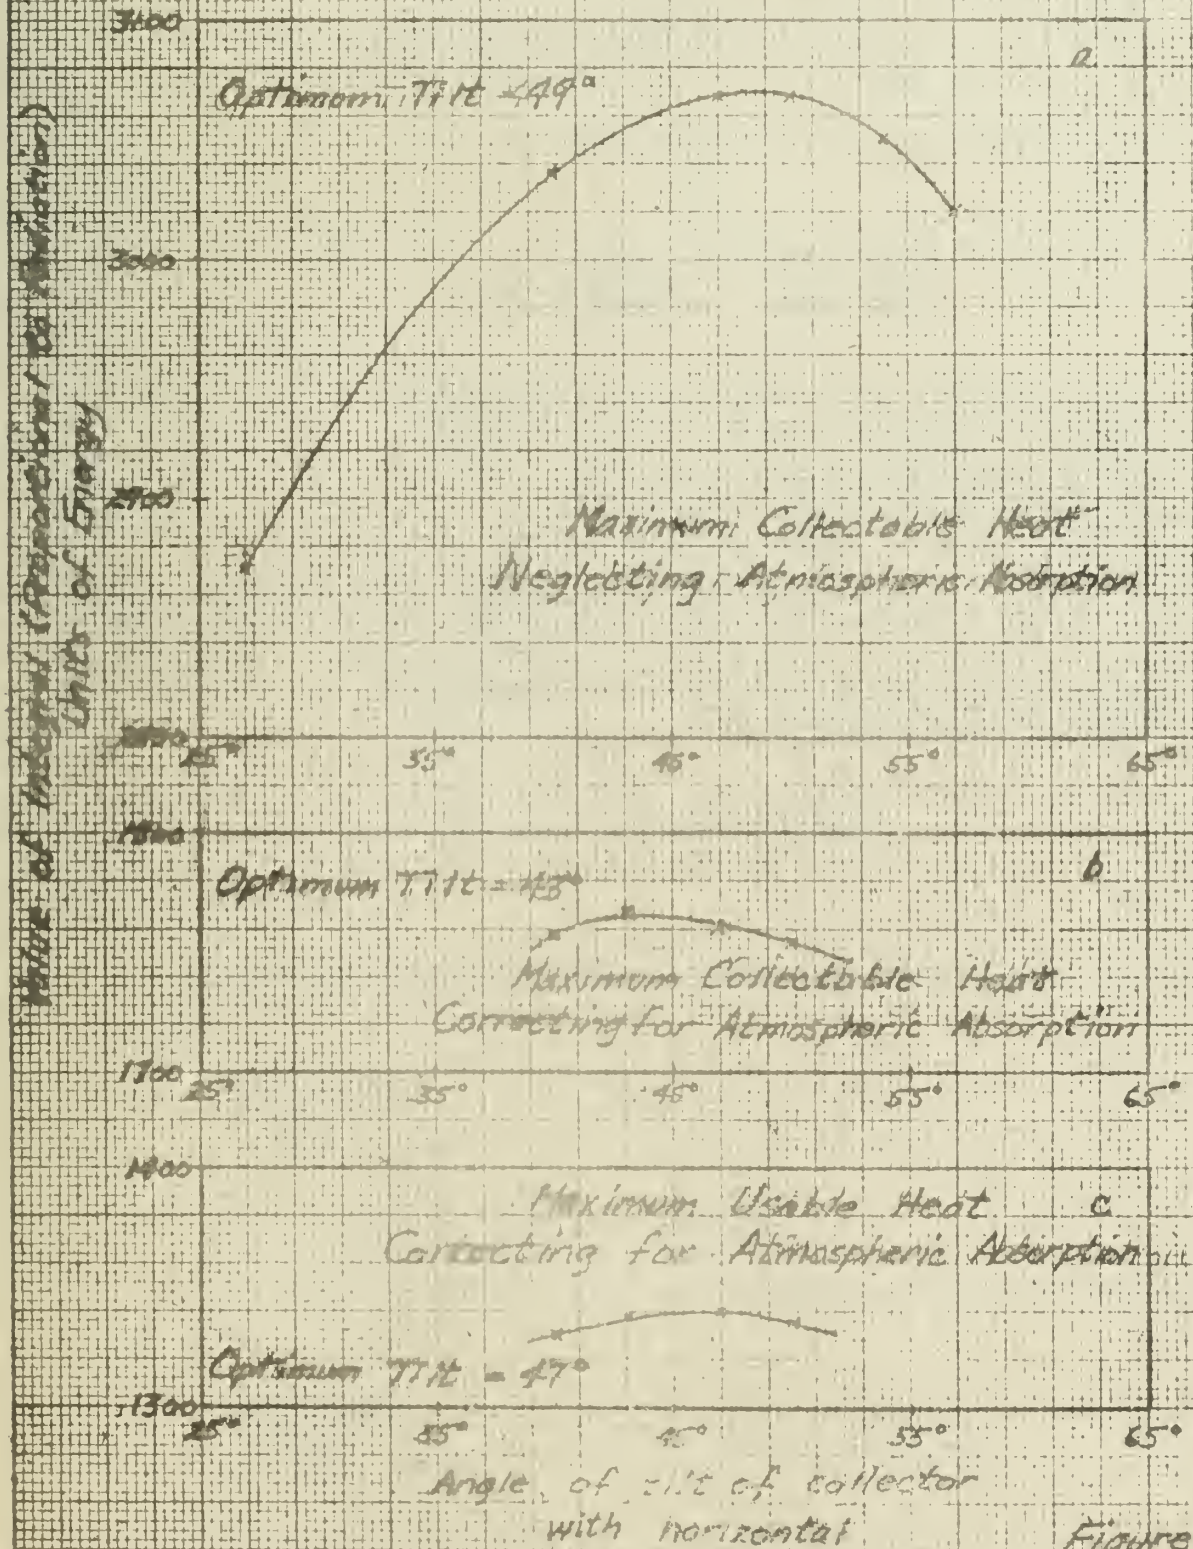 3100
a
Optimum Tilt = 49°
3000
Value of Integral (Proportional to Radiation)
Units of Energy
2900
Maximum Collectable Heat
Neglecting Atmospheric Absorption
2800
25° 35° 45° 55° 65°
1800
b
Optimum Tilt = 43°
Maximum Collectable Heat
Correcting for Atmospheric Absorption
1700
25° 35° 45° 55° 65°
1400
Maximum Usable Heat c
Correcting for Atmospheric Absorption
Optimum Tilt = 47°
1300
25° 35° 45° 55° 65°
Angle of tilt of collector
with horizontal
Figure